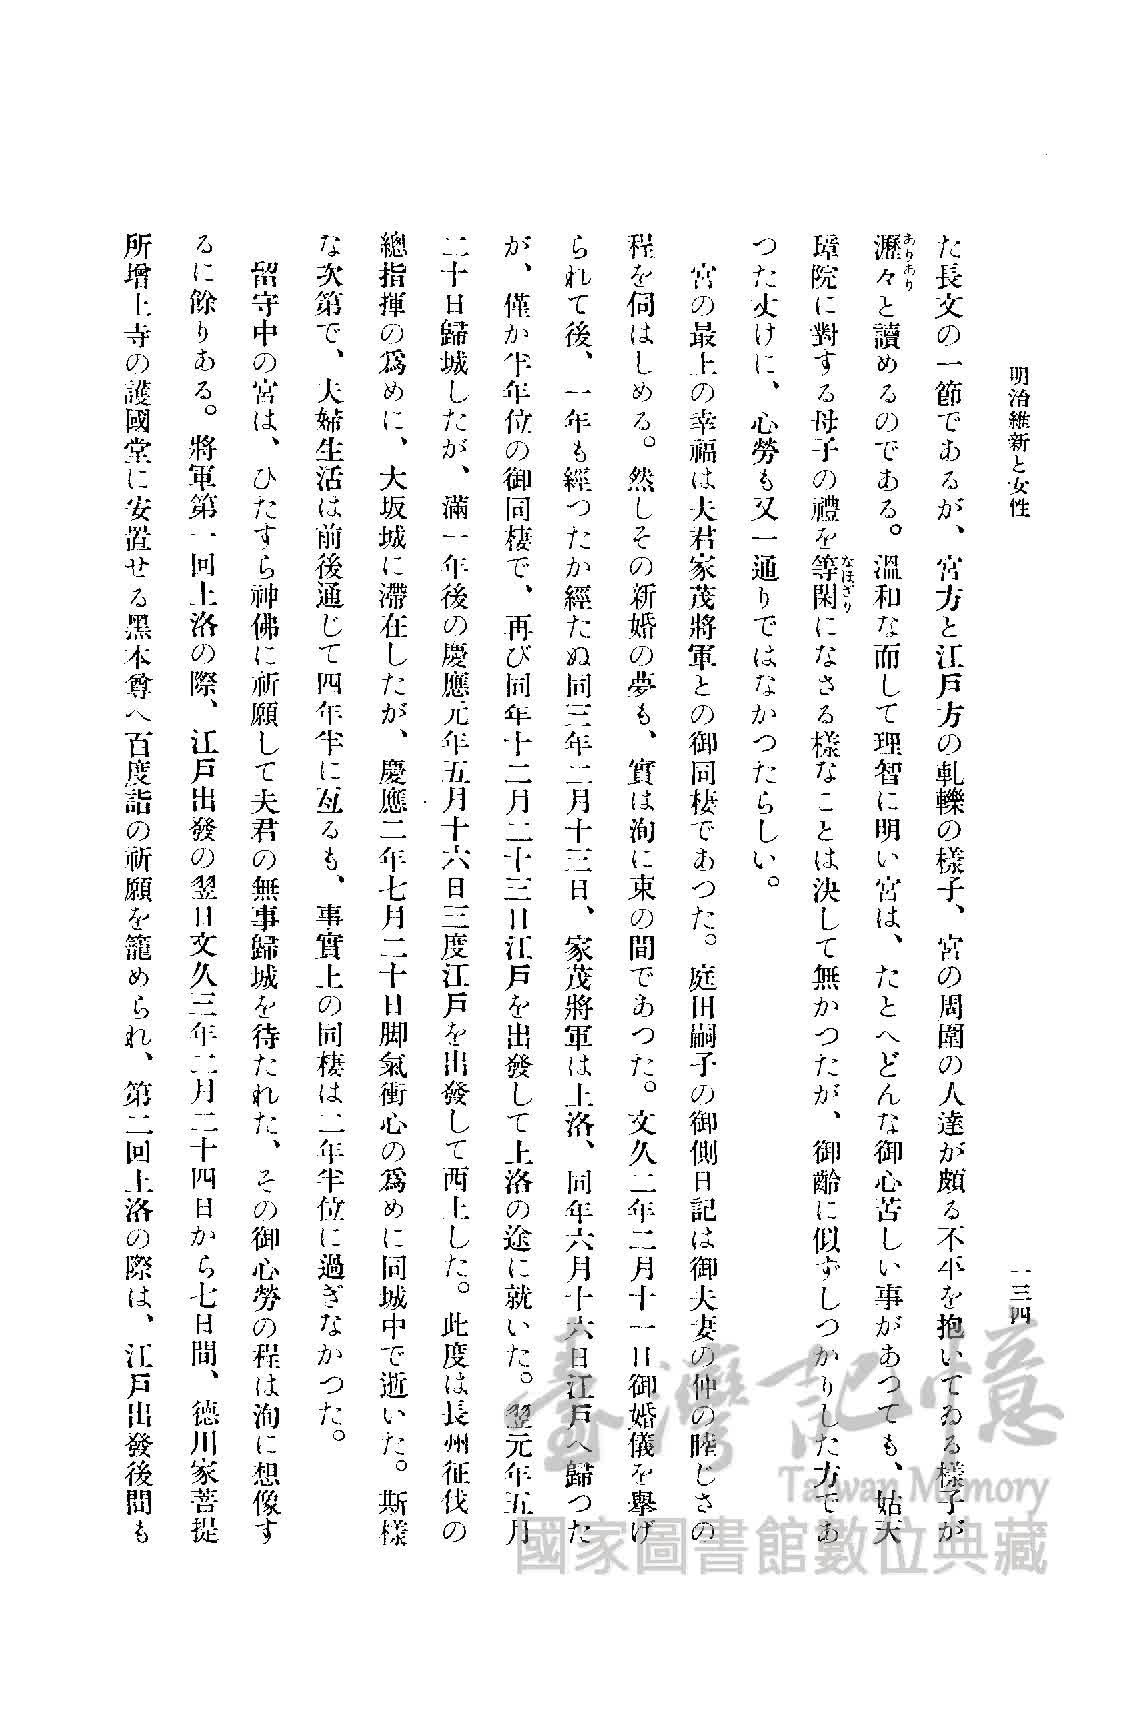 明治維新と女性
一三四
た長文の一節であるが、宮方と江戸方の軋轢の樣子、宮の周圍の人達が頗る不平を抱いてゐる樣子が
瀝々と讀めるのである。溫和な而して理智に明い宮は、たとへどんな御心苦しい事があつても、姑天
ありあり
璋院に對する母子の禮を等閑になさる樣なことは決して無かつたが、御齡に似ずしつかりした方であ
なほざり
つた丈けに、心勞も又一通りではなかつたらしい。
宮の最上の幸福は夫君家茂將軍との御同棲であつた。庭田嗣子の御側日記は御夫妻の仲の睦じさの
程を伺はしめる。然しその新婚の夢も、實は洵に束の間であつた。文久二年二月十一日御婚儀を擧げ
られて後、一年も經つたか經たぬ同三年二月十三日、家茂將軍は上洛、同年六月十六日江戸へ歸つた
が、僅か半年位の御同棲で、再び同年十二月二十三日江戸を出發して上洛の途に就いた。翌元年五月
二十日歸城したが、滿一年後の慶應元年五月十六日三度江戸を出發して西上した。此度は長州征伐の
總指揮の爲めに、大坂城に滯在したが、慶應二年七月二十日脚氣衝心の爲めに同城中で逝いた。斯樣
な次第で、夫婦生活は前後通じて四年半に亙るも、事實上の同棲は二年半位に過ぎなかつた。
留守中の宮は、ひたすら神佛に祈願して夫君の無事歸城を待たれた、その御心勞の程は洵に想像す
るに餘りある。將軍第一回上洛の際、江戸出發の翌日文久三年二月二十四日から七日間、德川家菩提
所增上寺の護國堂に安置せる黑本尊へ百度詣の祈願を籠められ、第二回上洛の際は、江戸出發後間も
臺灣記憶
Taiwan Memory
國家圖書館數位典藏